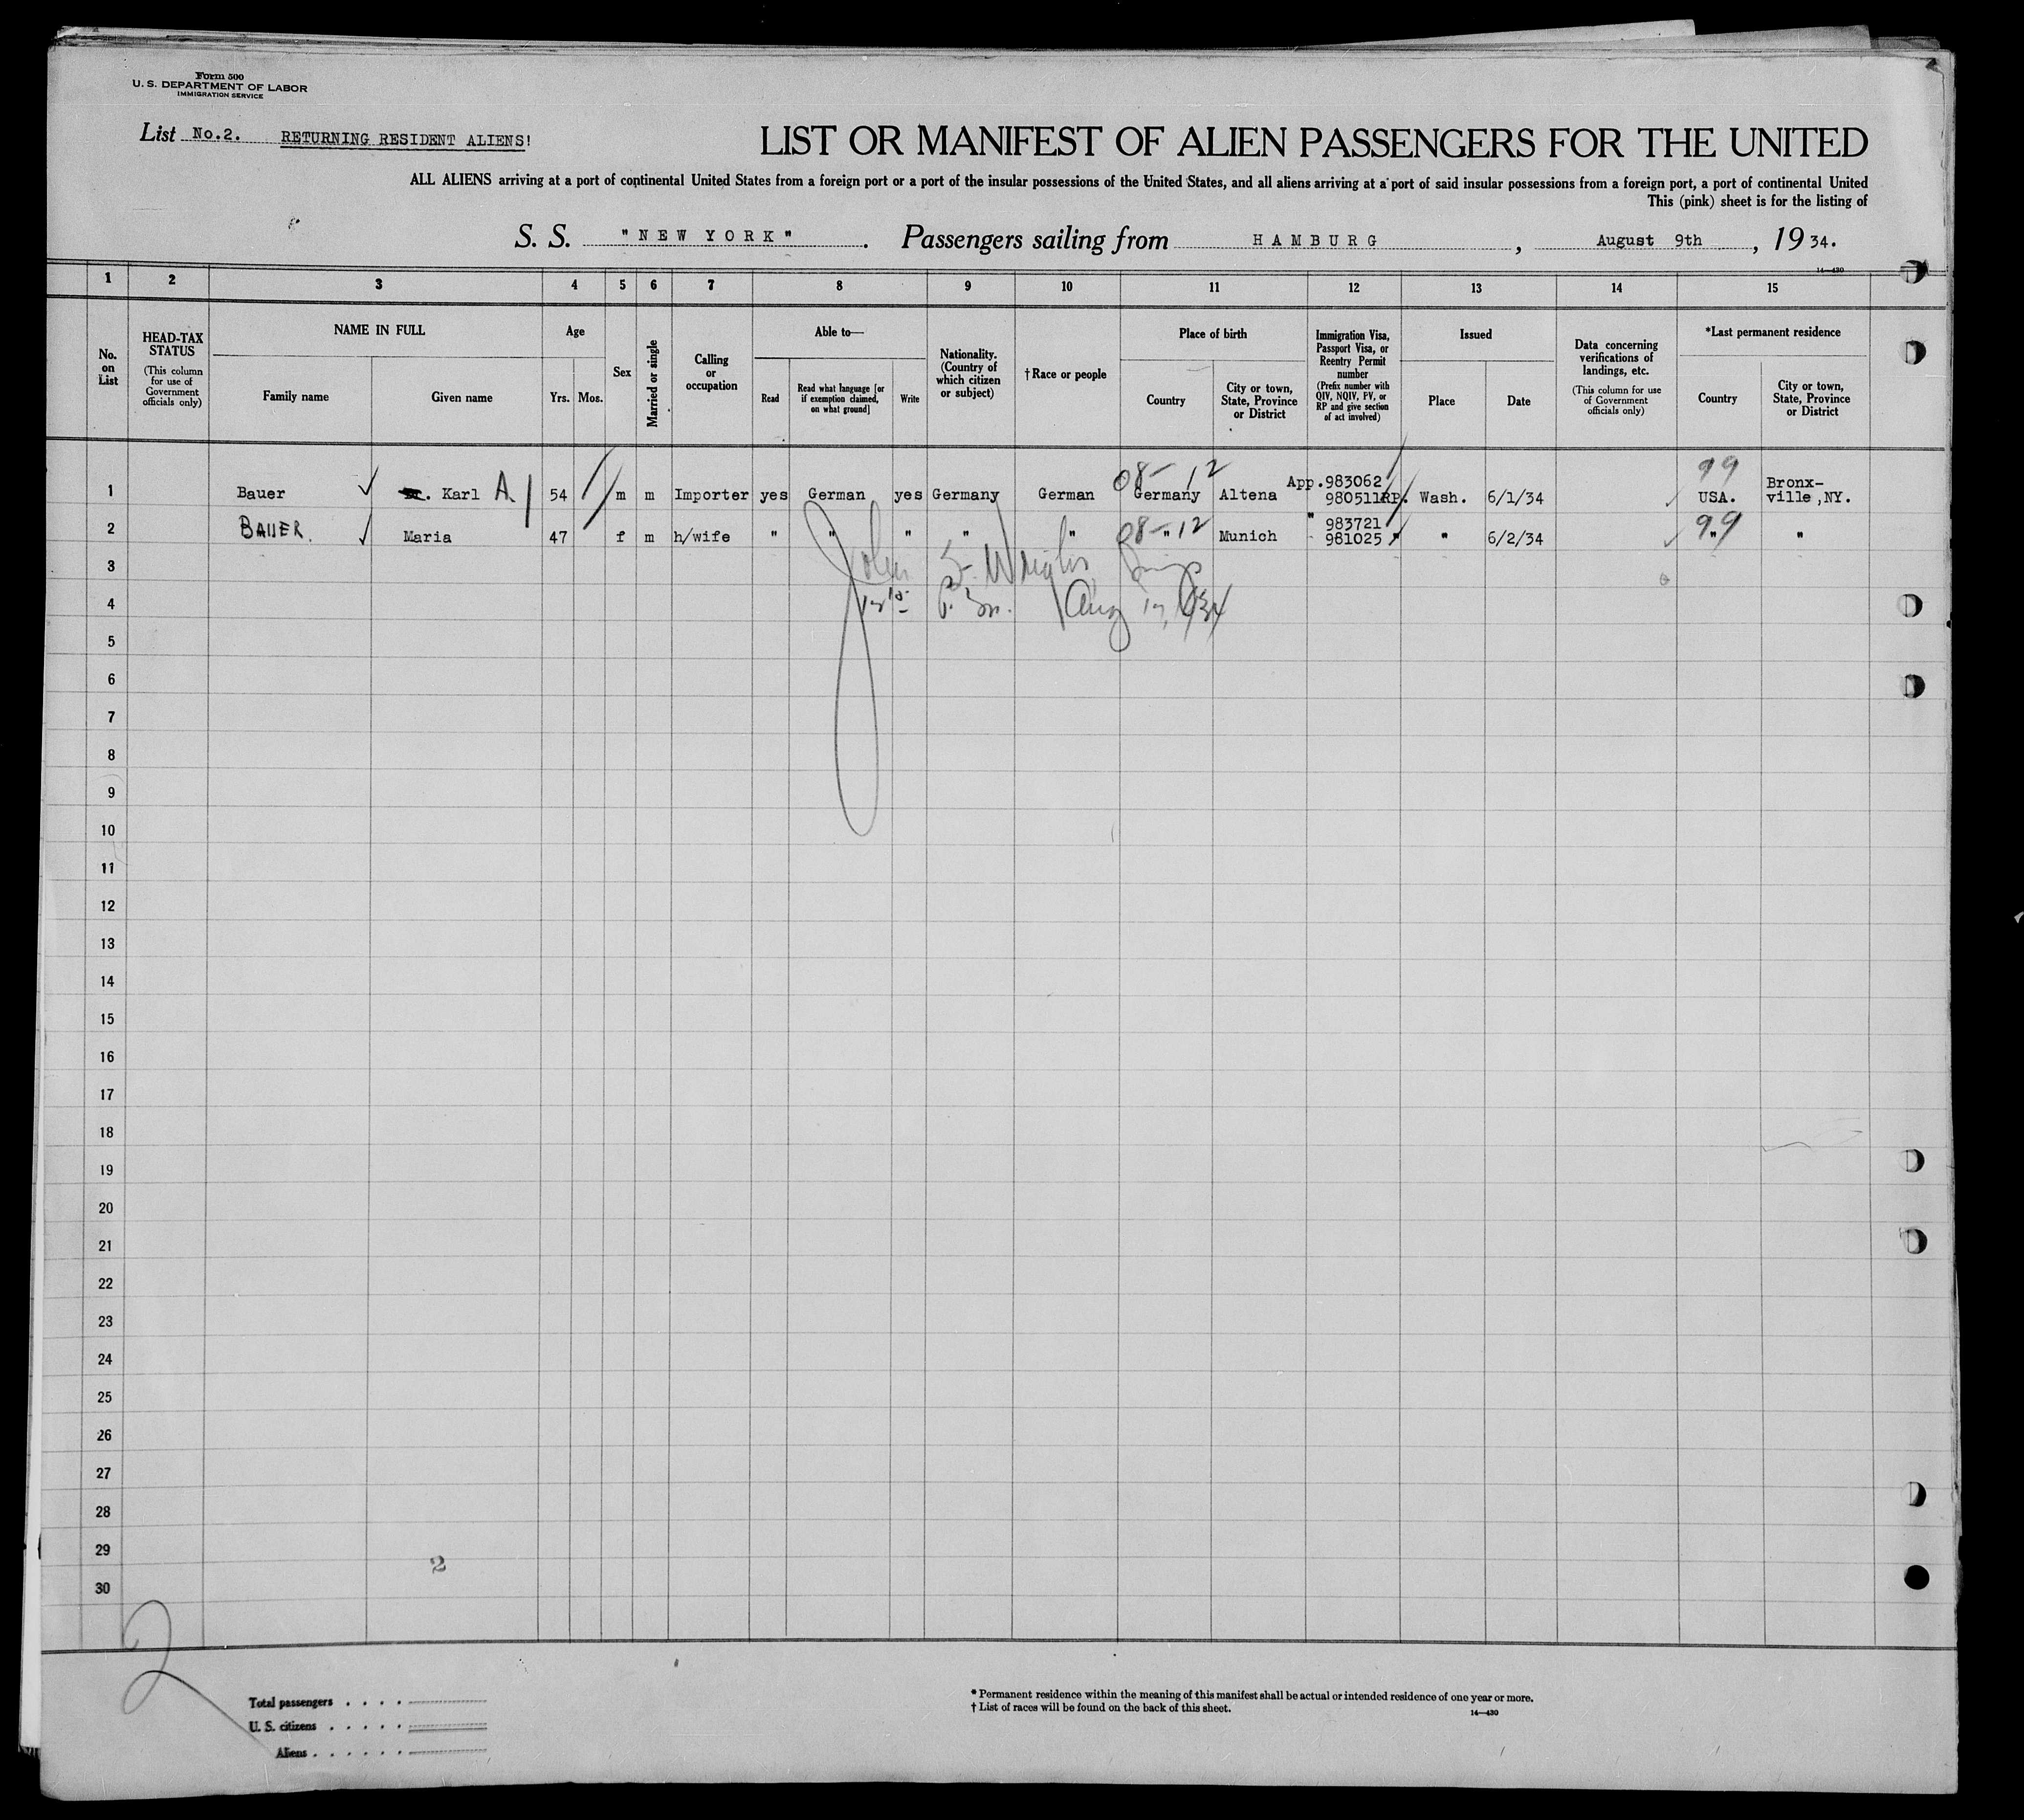 Form 500
U. S. DEPARTMENT OF LABOR
IMMIGRATION SERVICE
List No.2. RETURNING RESIDENT ALIENS!
LIST OR MANIFEST OF ALIEN PASSENGERS FOR THE UNITED
ALL ALIENS arriving at a port of continental United States from a foreign port or a port of the insular possessions of the United States, and all aliens arriving at a port of said insular possessions from a foreign port, a port of continental United
This (pink) sheet is for the listing of
S. S. "NEW YORK". Passengers sailing from HAMBURG, August 9th, 1934.
14—430
1 2 3 4 5 6 7 8 9 10 11 12 13 14 15
No. on List
HEAD-TAX STATUS
(This column for use of Government officials only)
NAME IN FULL
Family name
Given name
Age
Yrs. Mos.
Sex
Married or single
Calling or occupation
Able to—
Read
Read what language [or if exemption claimed, on what ground]
Write
Nationality. (Country of which citizen or subject)
†Race or people
Place of birth
Country
City or town, State, Province or District
Immigration Visa, Passport Visa, or Reentry Permit number
(Prefix number with QIV, NQIV, PV, or RP and give section of act involved)
Issued
Place
Date
Data concerning verifications of landings, etc.
(This column for use of Government officials only)
*Last permanent residence
Country
City or town, State, Province or District
08-12 App.983062 99 Bronx-
1 Bauer . Karl A. 54 m m Importer yes German yes Germany German Germany Altena 980511RP. Wash. 6/1/34 USA. ville,NY.
08-12 " 983721 99
2 BAUER. Maria 47 f m h/wife " " " " " " Munich 981025 " " 6/2/34 " "
3 John
4 Aug 17, 1934
5
6
7
8
9
10
11
12
13
14
15
16
17
18
19
20
21
22
23
24
25
26
27
28
29
2
30
2
Total passengers . . . .
U. S. citizens . . . . .
Aliens . . . . . .
* Permanent residence within the meaning of this manifest shall be actual or intended residence of one year or more.
† List of races will be found on the back of this sheet.
14—430